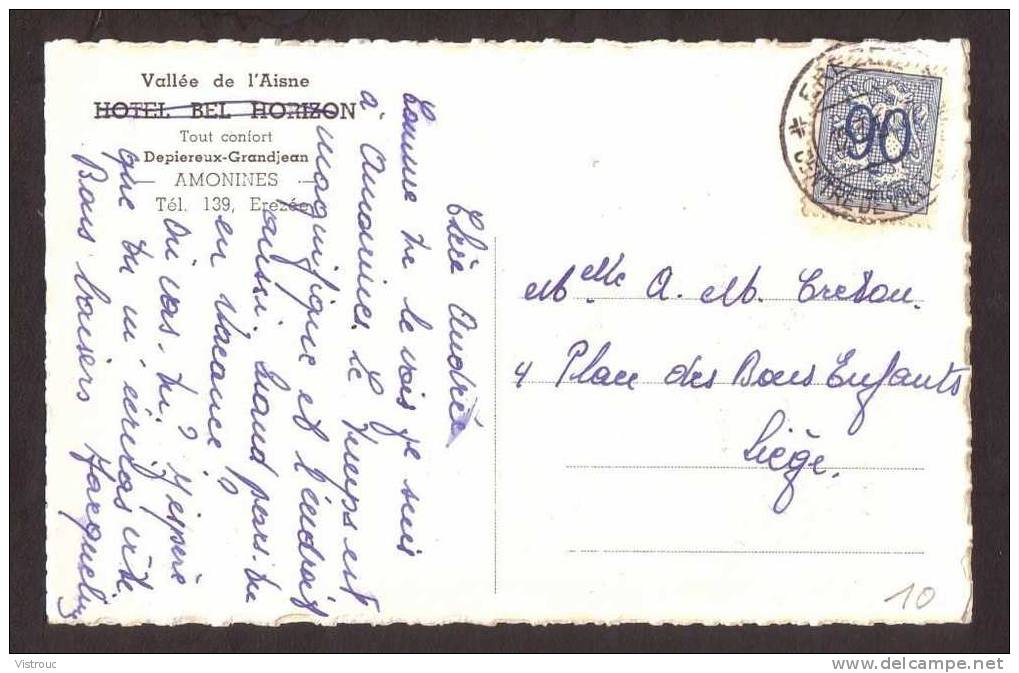 Vallée de l'Aisne
HOTEL BEL HORIZON
Tout confort
Depiereux-Grandjean
AMONINES
Tél. 139, Erezée
Chère Andrée
Comme tu le vois je suis
à Amonines. Le temps est
magnifique et l'endroit
aussi. Quand pars-tu
en vacance?
Où vas-tu? J'espère
que tu m'écriras vite.
Bons baisers Jacqueline
90
BELGIE
Melle A. M. Creton.
4 Place des Bons Enfants
Liège.
10
Vistrouc
www.delcampe.net